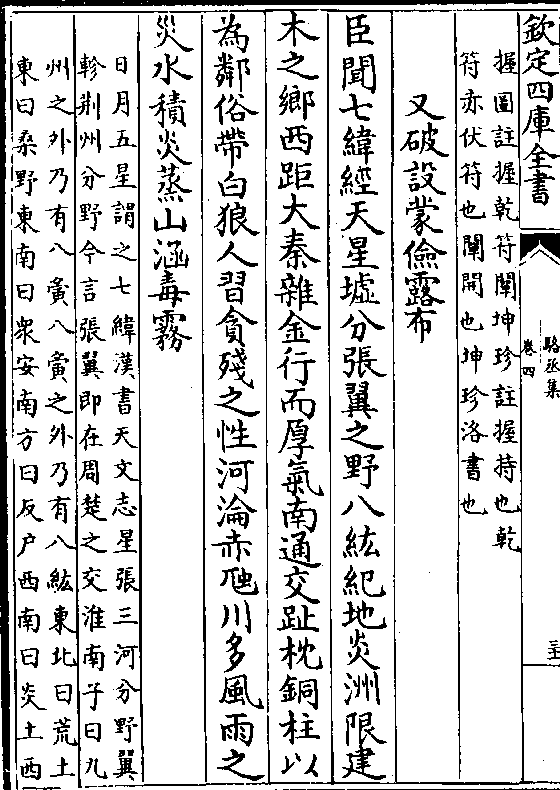 欽定四庫全書
駱丞集
卷四
三
握圖註握乾符闡坤珍註握持也乾
符赤伏符也闡開也坤珍洛書也
又破設蒙儉露布
臣聞七緯經天星墟分張翼之野八紘紀地炎洲限建
木之鄉西距大秦雜金行而厚氣南通交趾枕銅柱以
為鄰俗帶白狼人習貪殘之性河淪赤虺川多風雨之
災水積炎蒸山涵毒霧
日月五星謂之七緯漢書天文志星張三河分野翼
軫荆州分野今言張翼即在周楚之交淮南子曰九
州之外乃有八夤八夤之外乃有八紘東北曰荒土
東曰桑野東南曰衆安南方曰反户西南曰炎土西